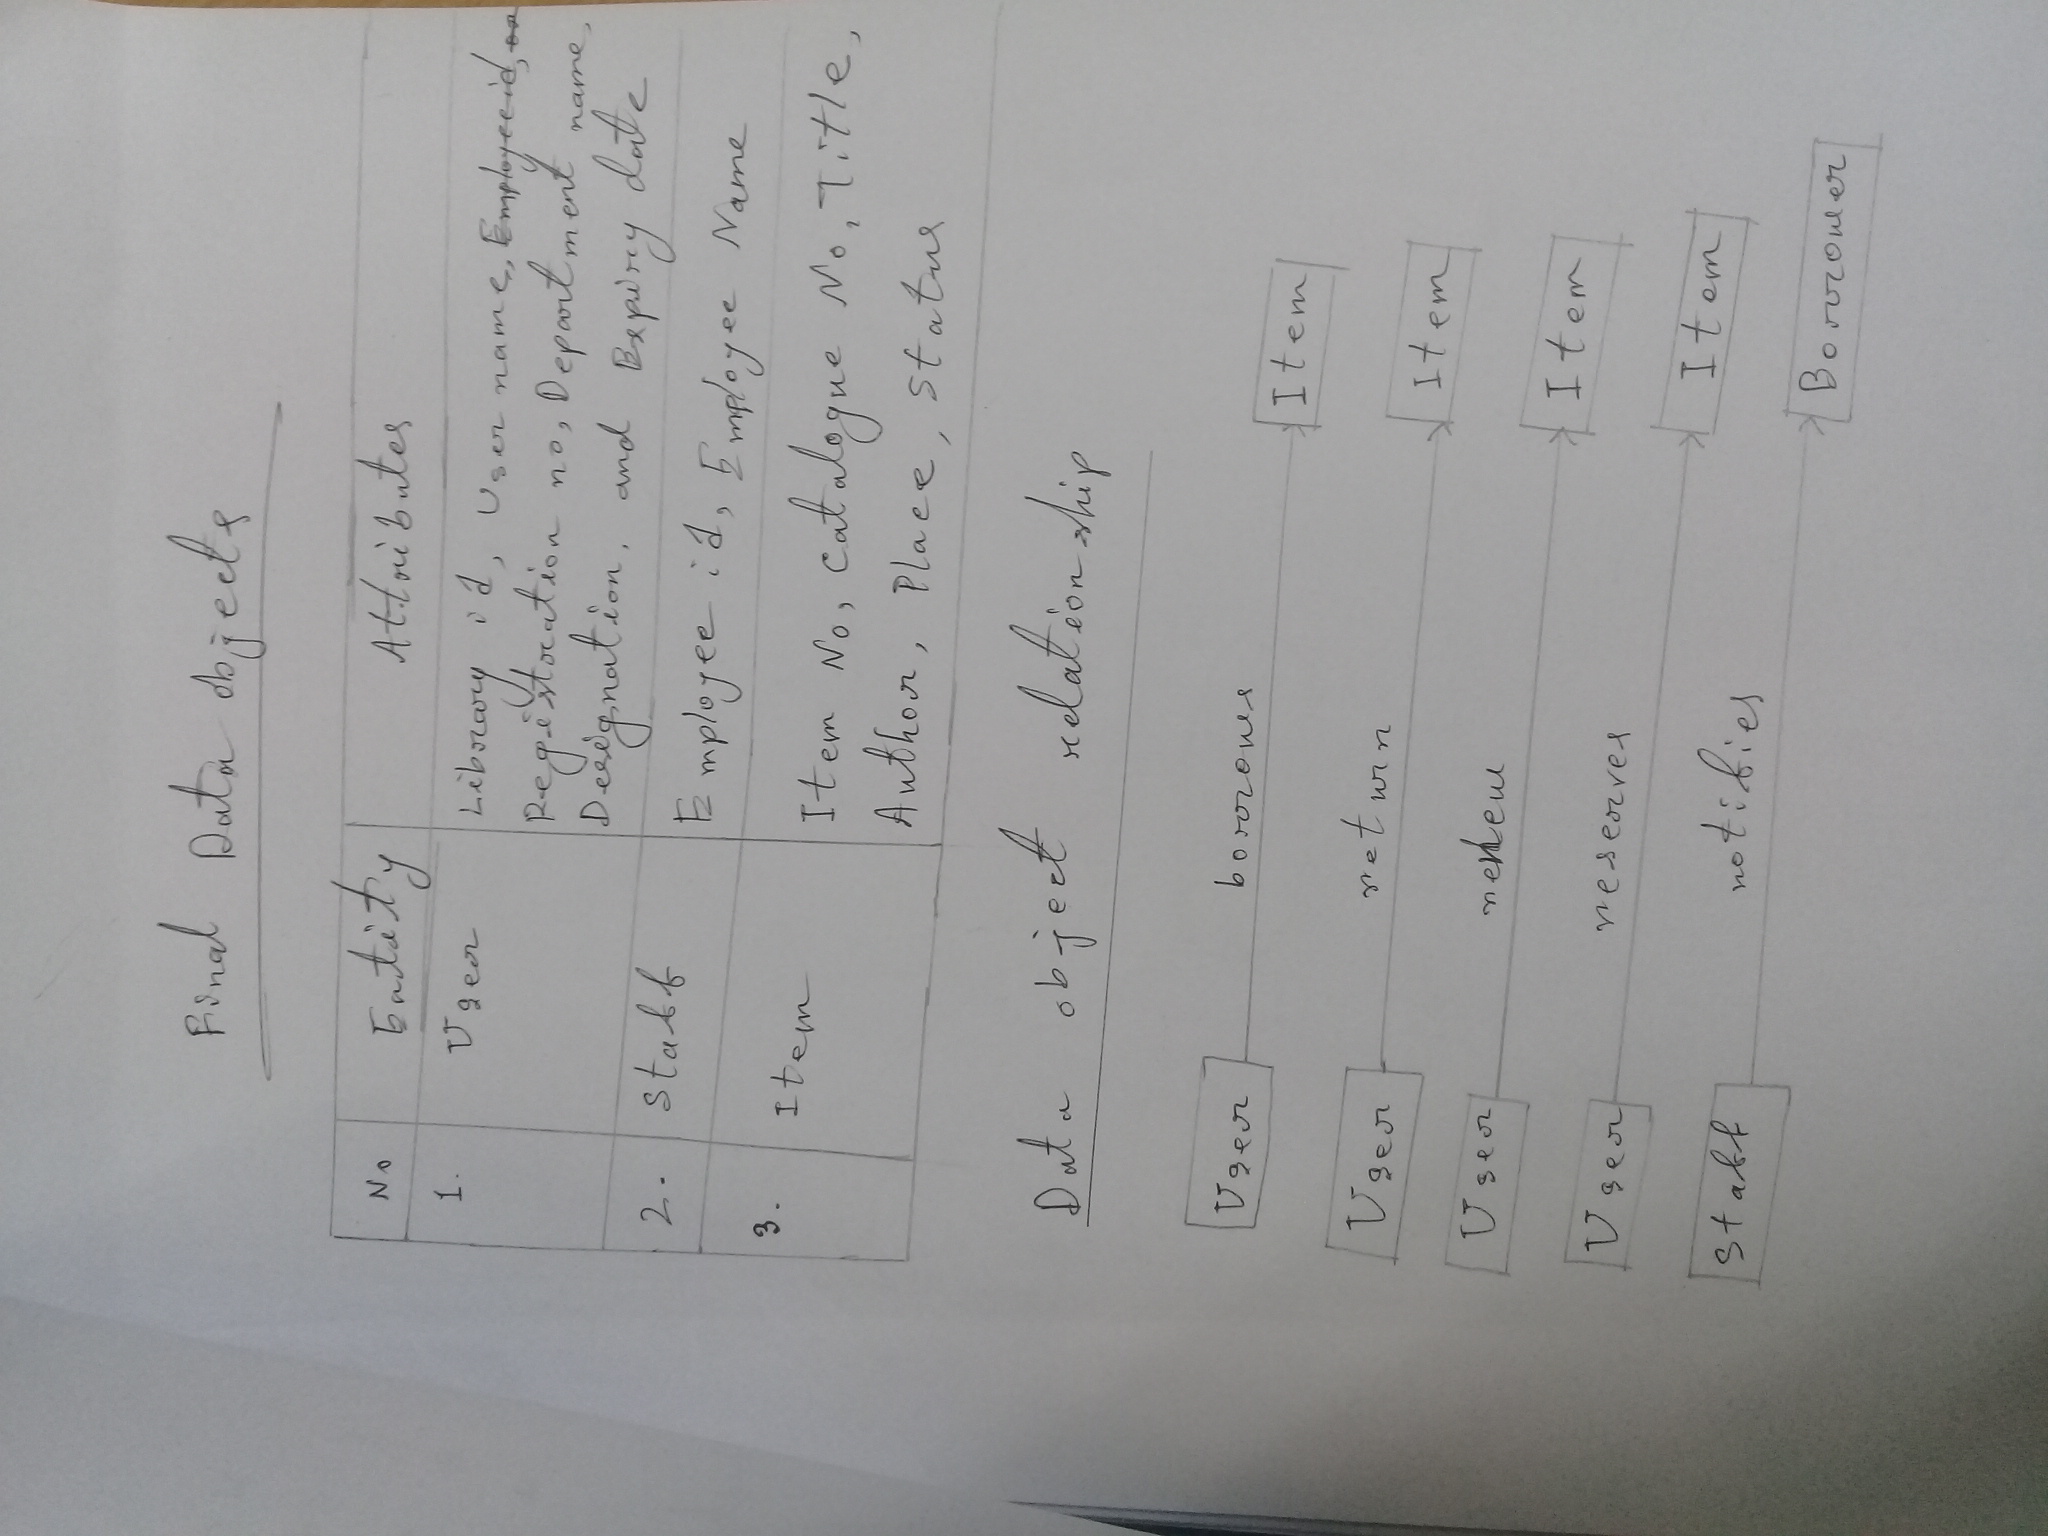 Final Data objects
No Entity Attributes
1. User Library id, User name, Employee id, or
Registration no, Department name,
Designation, and Expiry date
2. Staff Employee id, Employee Name
3. Item Item No, Catalogue No, Title,
Author, Place, Status
Data object relationship
User borrows Item
User return Item
User renew Item
User reserves Item
Staff notifies Borrower